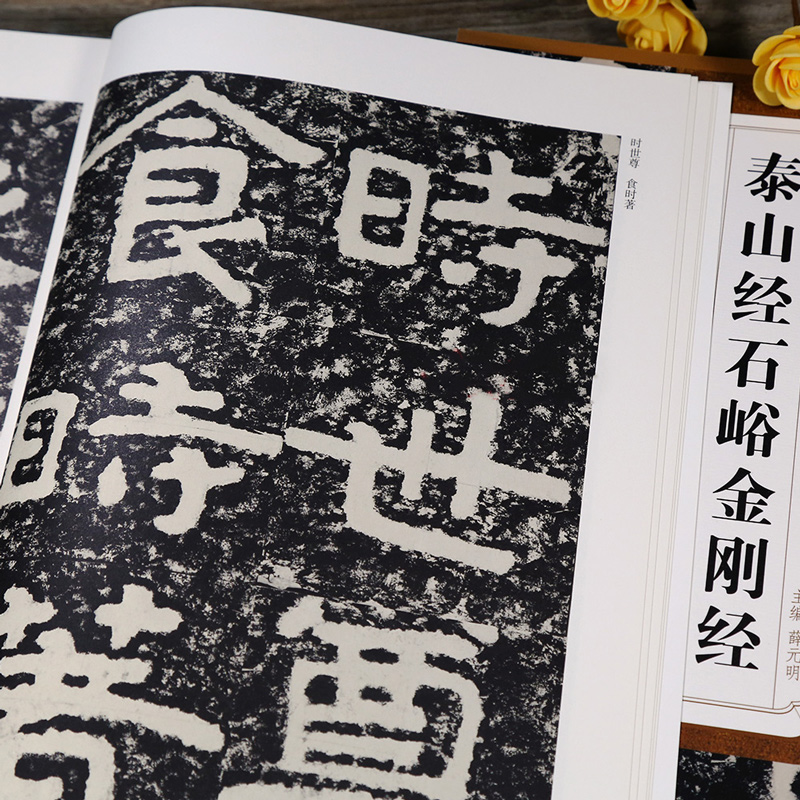 時世尊
食時著
时世尊 食时著
泰山经石峪金刚经
主编 薛元明